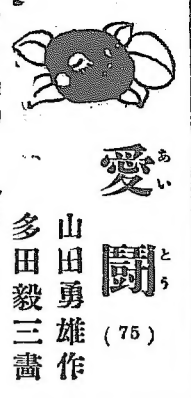 愛闘
あいとう
(75)
山田勇雄作
多田毅三畵